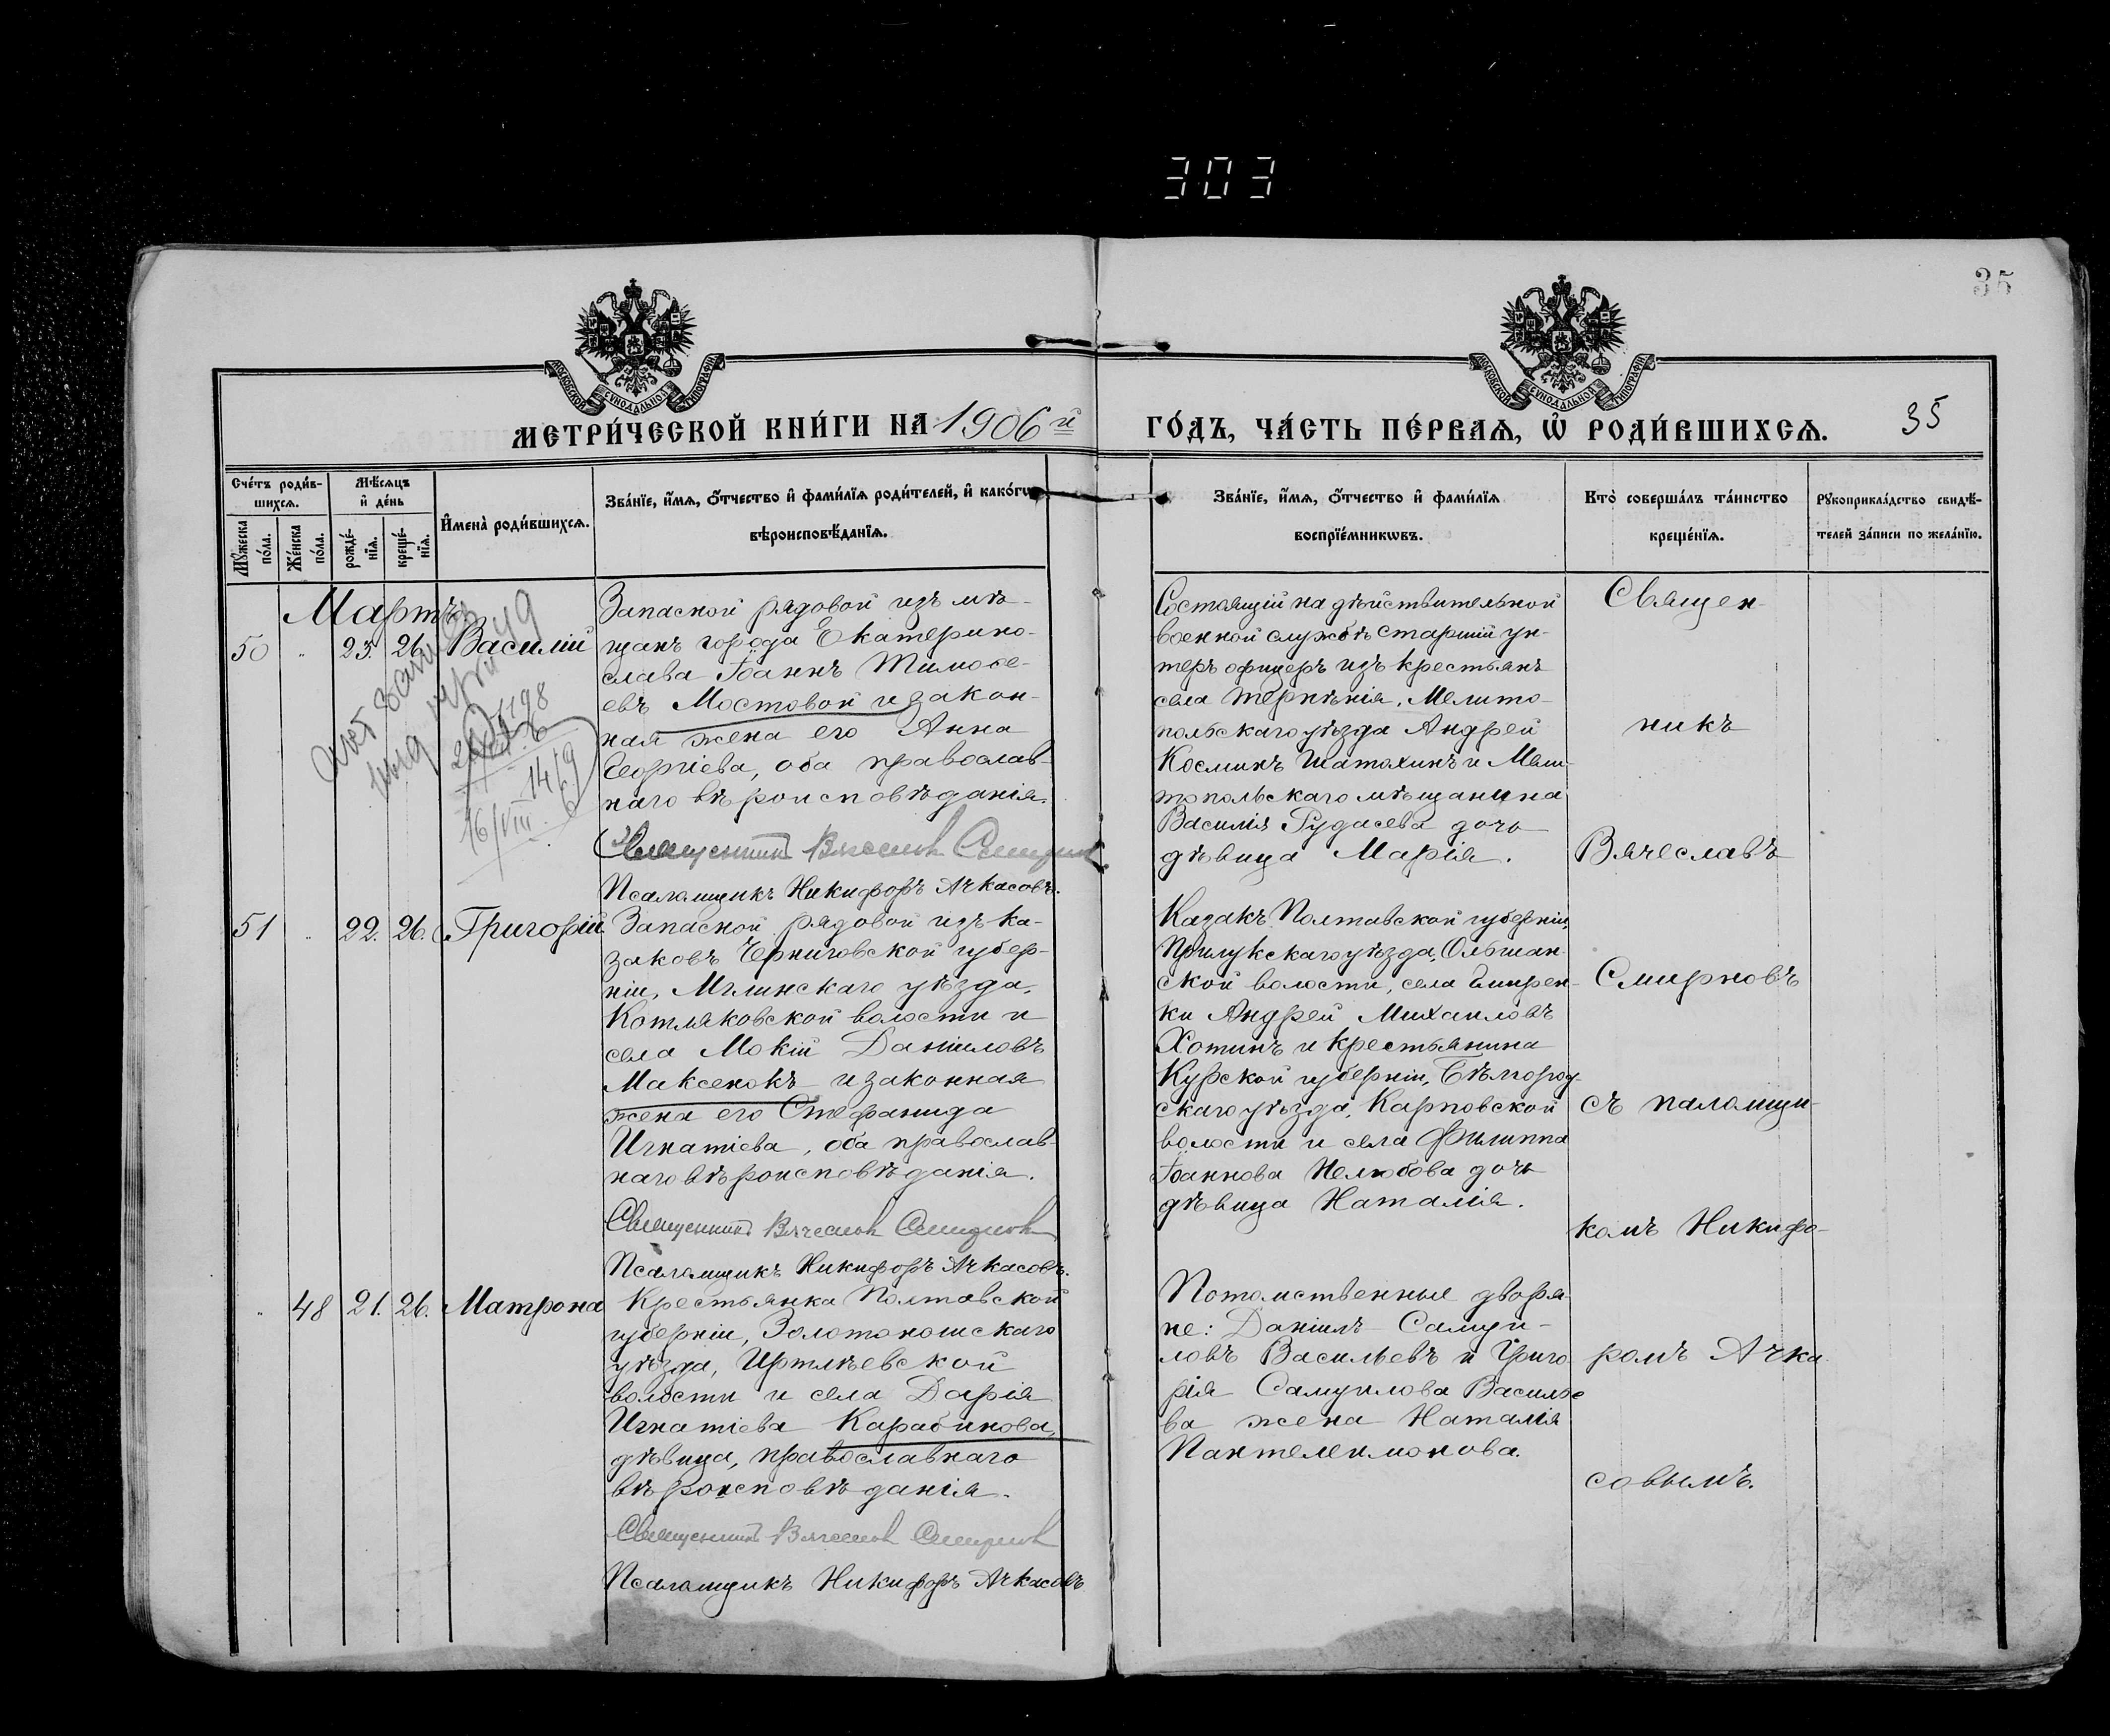 303
35
МОСКОВСКОЙ СѴНОДАЛЬНОЙ ТИПОГРАФІИ
МОСКОВСКОЙ СѴНОДАЛЬНОЙ ТИПОГРАФІИ
МЕТРИ́ЧЕСКОЙ КНИ́ГИ НА 1906й ГО́ДЪ, ЧА́СТЬ ПЕ́РВАѦ, Ѡ҆ РОДИ́ВШИХСѦ. 35
Сче́тъ роди́в-
шихсѧ.
Мꙋ́жеска
по́ла.
Же́нска
по́ла.
Мѣ́сѧцъ
и҆ де́нь
рожде́-
нїѧ.
креще́-
нїѧ.
И҆мена̀ роди́вшихсѧ.
Зва́нїе, и҆́мѧ, ѻ҆́тчество и҆ фами́лїѧ роди́телей, и҆ како́гѡ
вѣроисповѣ́данїѧ.
Зва́нїе, и҆́мѧ, ѻ҆́тчество и҆ фами́лїѧ
воспрїе́мникѡвъ.
Кто̀ соверша́лъ та́инство
креще́нїѧ.
Рꙋкоприкла́дство свидѣ́-
телей за́писи по жела́нїю.
Мартъ
50 " 23. 26. Василій
Запасной рядовой изъ мѣ-
щанъ города Екатерино-
слава Іоаннъ Тимоѳе-
евъ Мостовой и закон-
ная жена его Анна
Георгіева, оба православ-
наго вѣроисповѣданія.
Священникъ Вячеславъ Смирновъ
Псаломщикъ Никифоръ Ачкасовъ.
Состоящій на дѣйствительной
военной службѣ старшій ун-
теръ офицеръ изъ крестьянъ
села Терпѣнія, Мелито-
польскаго уѣзда Андрей
Косминъ Шатохинъ и Мели-
топольскаго мѣщанина
Василія Гудасева дочь
дѣвица Марія.
16/VIII
51 " 22. 26. Григорій
Запасной рядовой изъ ка-
заковъ Черниговской губер-
ніи, Мглинскаго уѣзда,
Котляковской волости и
села Мокій Даниловъ
Максенокъ и законная
жена его Стефанида
Игнатіева, оба православ-
наго вѣроисповѣданія.
Священникъ Вячеславъ Смирновъ
Псаломщикъ Никифоръ Ачкасовъ.
Казакъ Полтавской губерніи,
Прилукскаго уѣзда, Ольшан-
ской волости, села
ки Андрей Михаиловъ
Хотинъ и крестьянина
Курской губерніи, Бѣлгород-
скаго уѣзда, Карповской
волости и села Филиппа
Іоаннова Нелюбова дочь
дѣвица Наталія.
" 48 21. 26. Матрона
Крестьянка Полтавской
губерніи, Золотоношскаго
уѣзда, Ирклѣевской
волости и села Дарія
Игнатіева Карабинова,
дѣвица, православнаго
вѣроисповѣданія.
Священникъ Вячеславъ Смирновъ
Псаломщикъ Никифоръ Ачкасовъ
Потомственные дворя-
не: Даніилъ Самуи-
ловъ Васильевъ и Григо-
рія Самуилова Василье
ва жена Наталія
Пантелеимонова.
Священ-
никъ
Вячеславъ
Смирновъ
съ паломщи-
комъ Никифо-
ромъ Ачка-
совымъ.